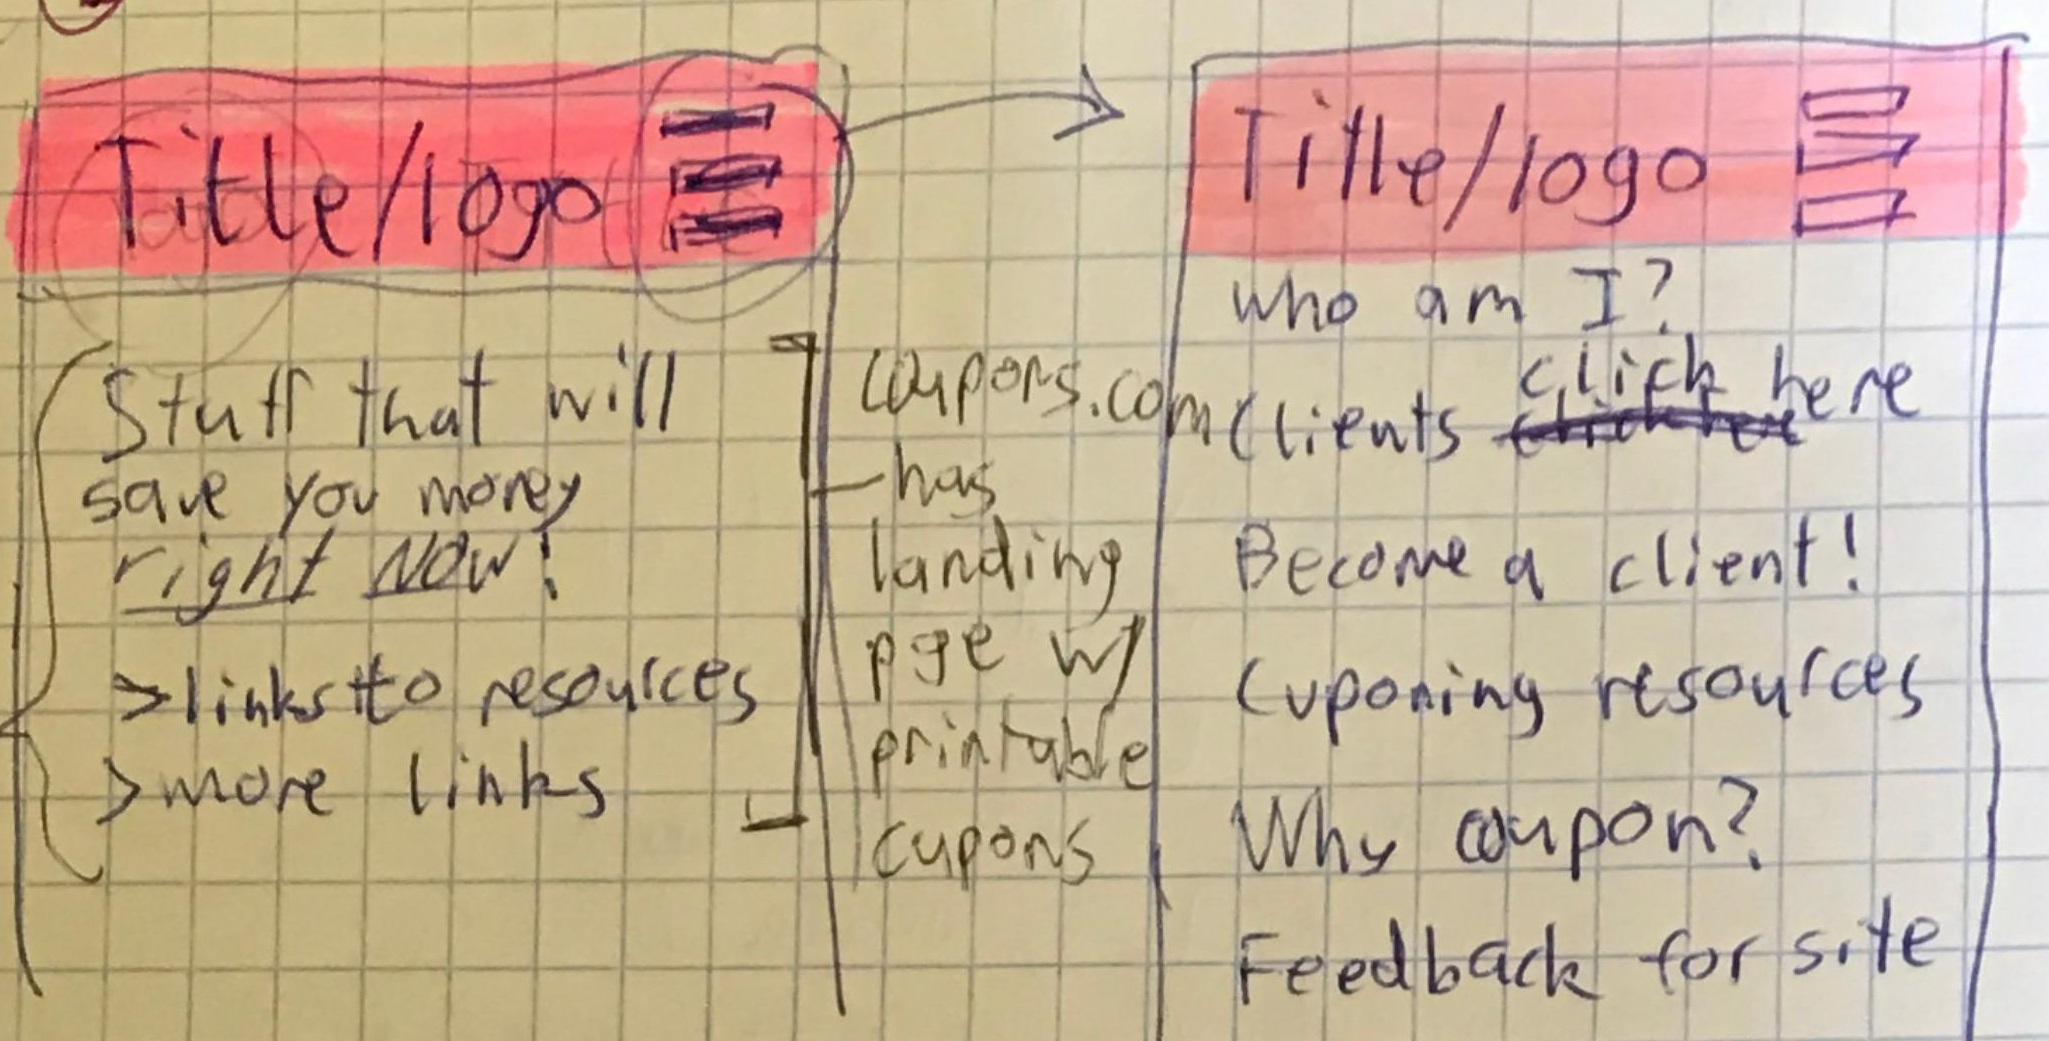 Title/logo
Stuff that will
save you money
right NOW!
>links to resources
>more links
coupons.com
-has
landing
pge w/
printable
cupons
Title/logo
who am I?
Clients click here
Become a client!
Cuponing resources
Why coupon?
Feedback for site